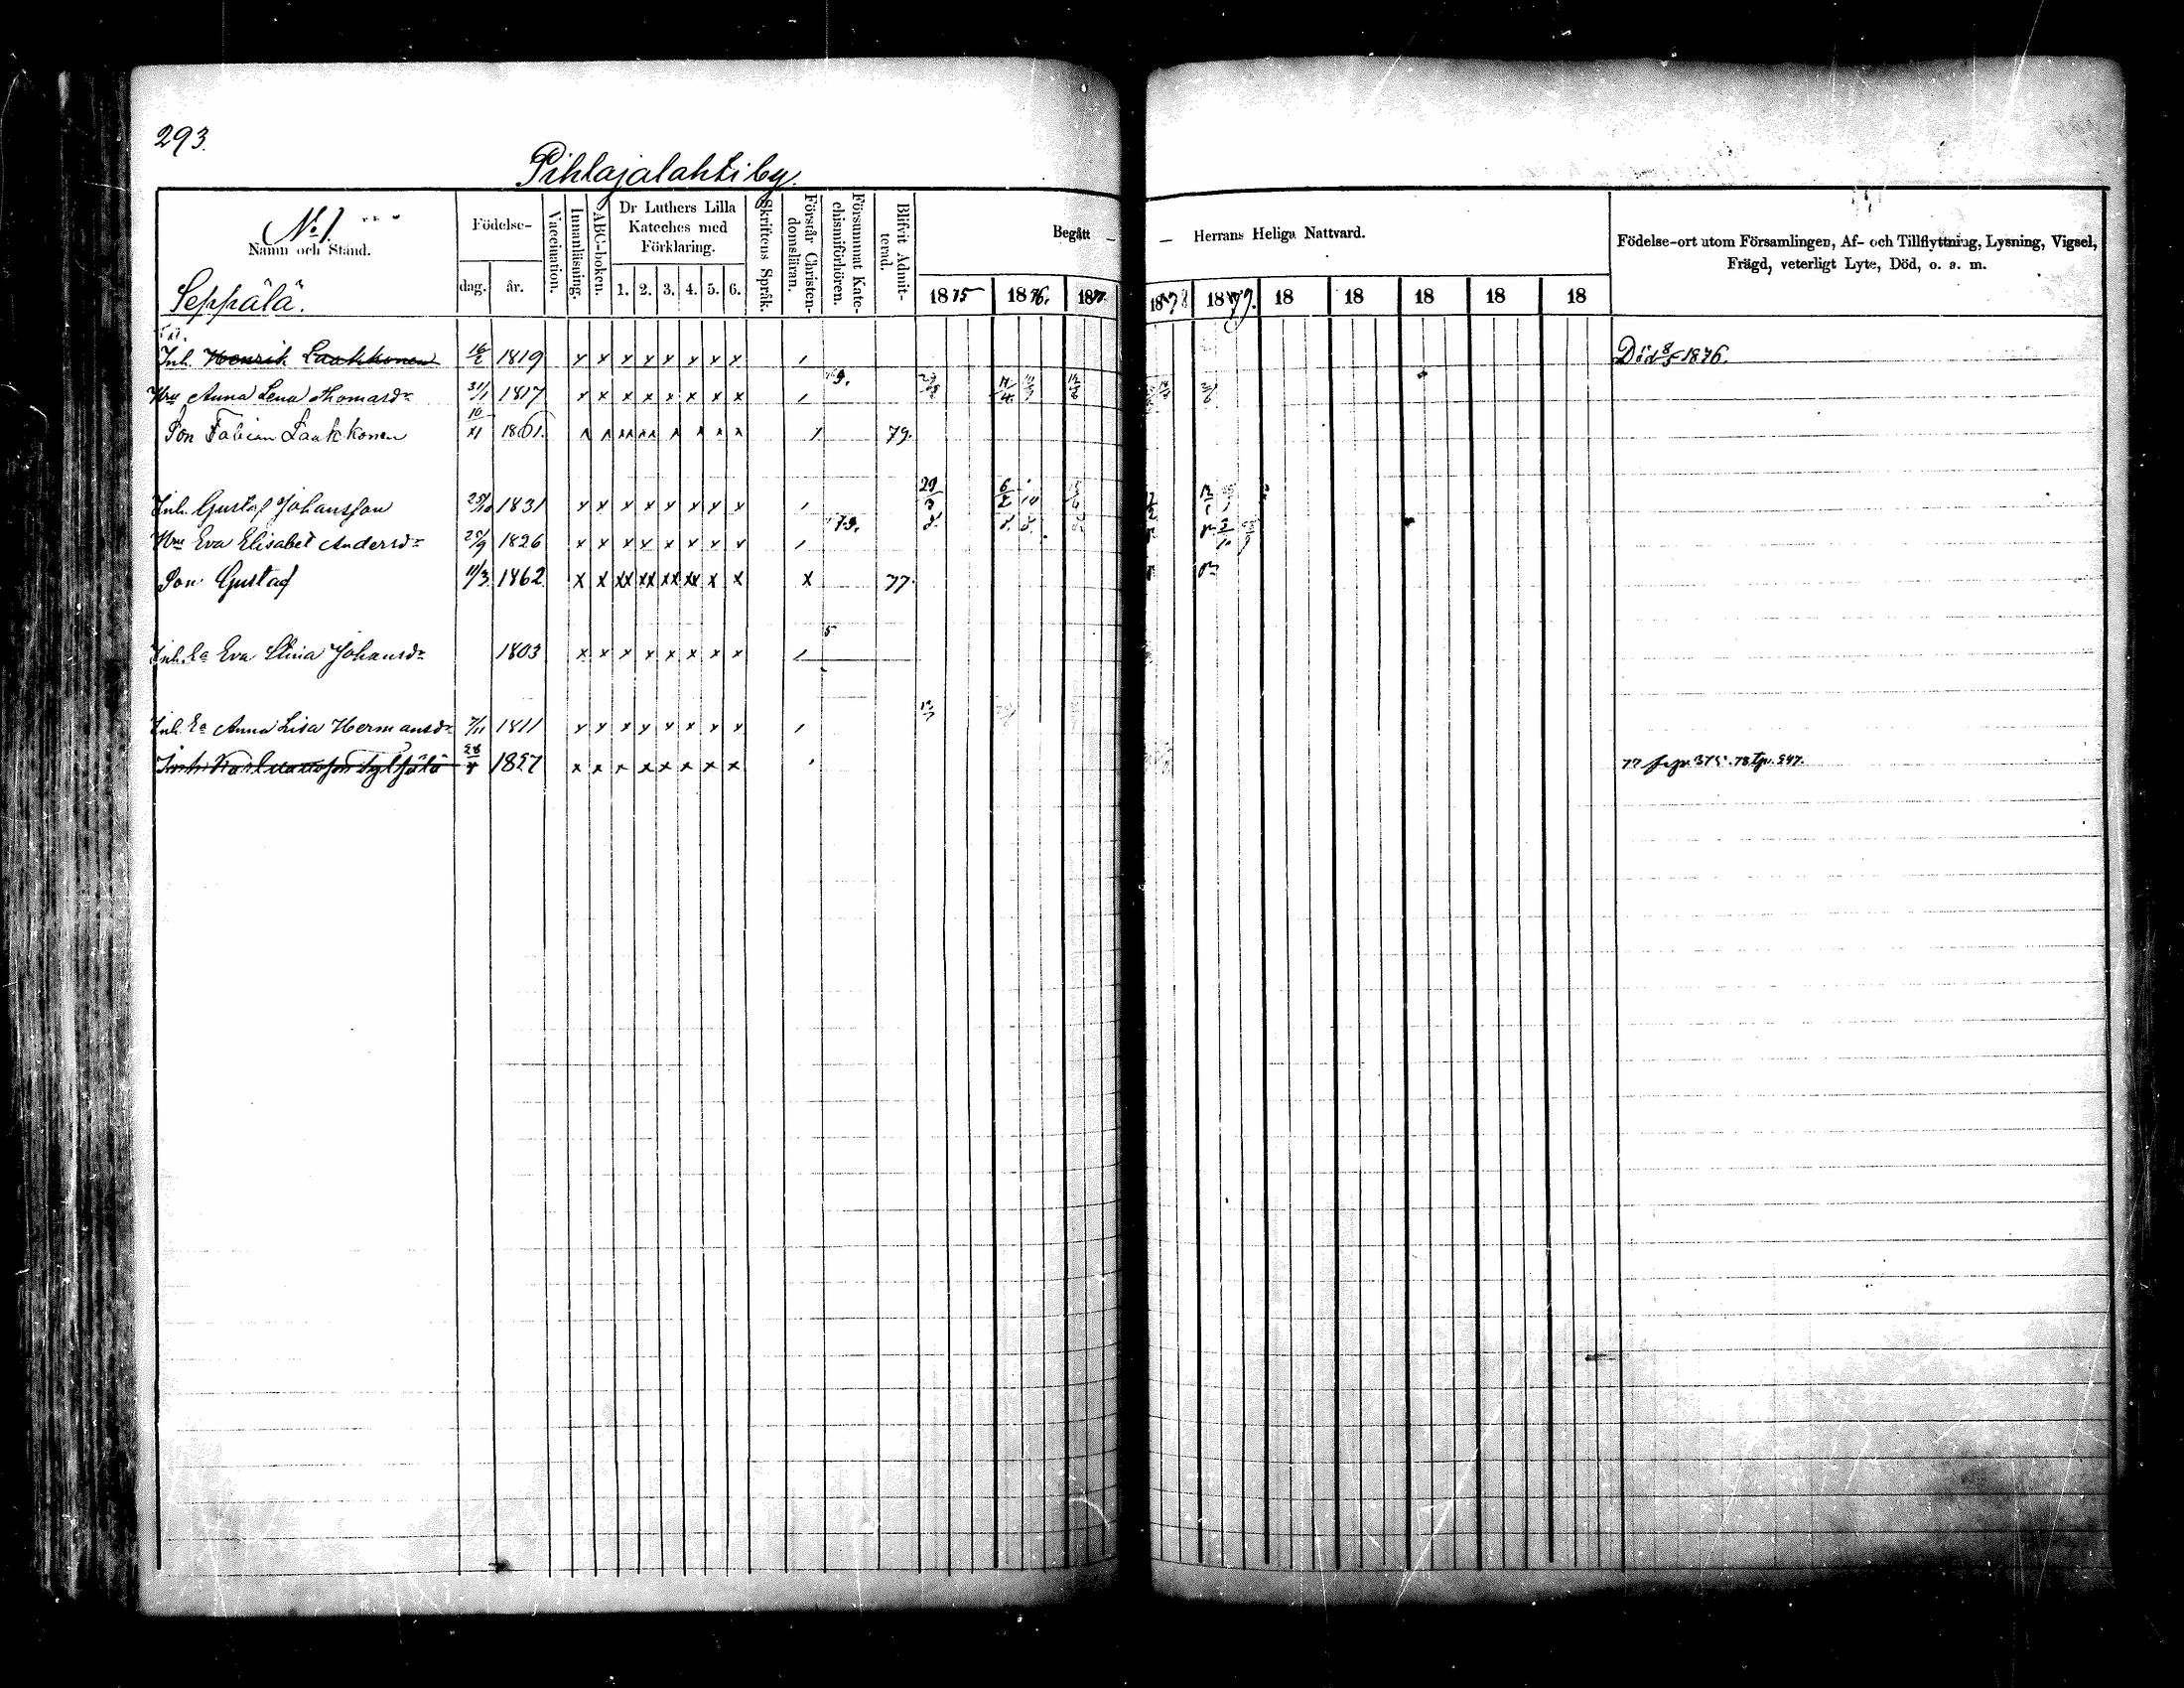 293.
Pihlajalahti by.
No 1.
Namn och Stånd.
Födelse-
dag.
år.
Vaccination.
Innanläsning.
ABC-boken.
Dr Luthers Lilla
Kateches med
Förklaring.
1. 2. 3. 4. 5. 6.
Skriftens Språk.
Förstår Christen-
domsläran.
Försummat Kate-
chismiförhören.
Blifvit Admit-
terad.
Begått — — Herrans Heliga Nattvard.
1875 1876. 187 1878 1879. 18 18 18 18 18
Födelse-ort utom Församlingen, Af- och Tillflyttning, Lysning, Vigsel,
Frägd, veterligt Lyte, Död, o. s. m.
Seppälä.
Inh. Henrik Laakkonen 16/2 1819 x x x x x x x x Död 8/5 1876.
Hru Anna Lena Thomasdr 31/1 1817 x x x x x x x x
Son Fabian Laakkonen 1861. 79.
Inh. Gustaf Johansson 1831 x x x x x x x x
Hru Eva Elisabet Andersdr 25/9 1826 x x x x x x x x
Son Gustaf 11/3 1862 x x xx xx xx xx x x x 77.
Inh. Ea Eva Johansdr 1803 x x x x x x x x
Inh. Ea Anna Lisa Hermansdr 7/11 1811 x x x x x x x x
1857 x x x x x x x x 77 375. 78 947.